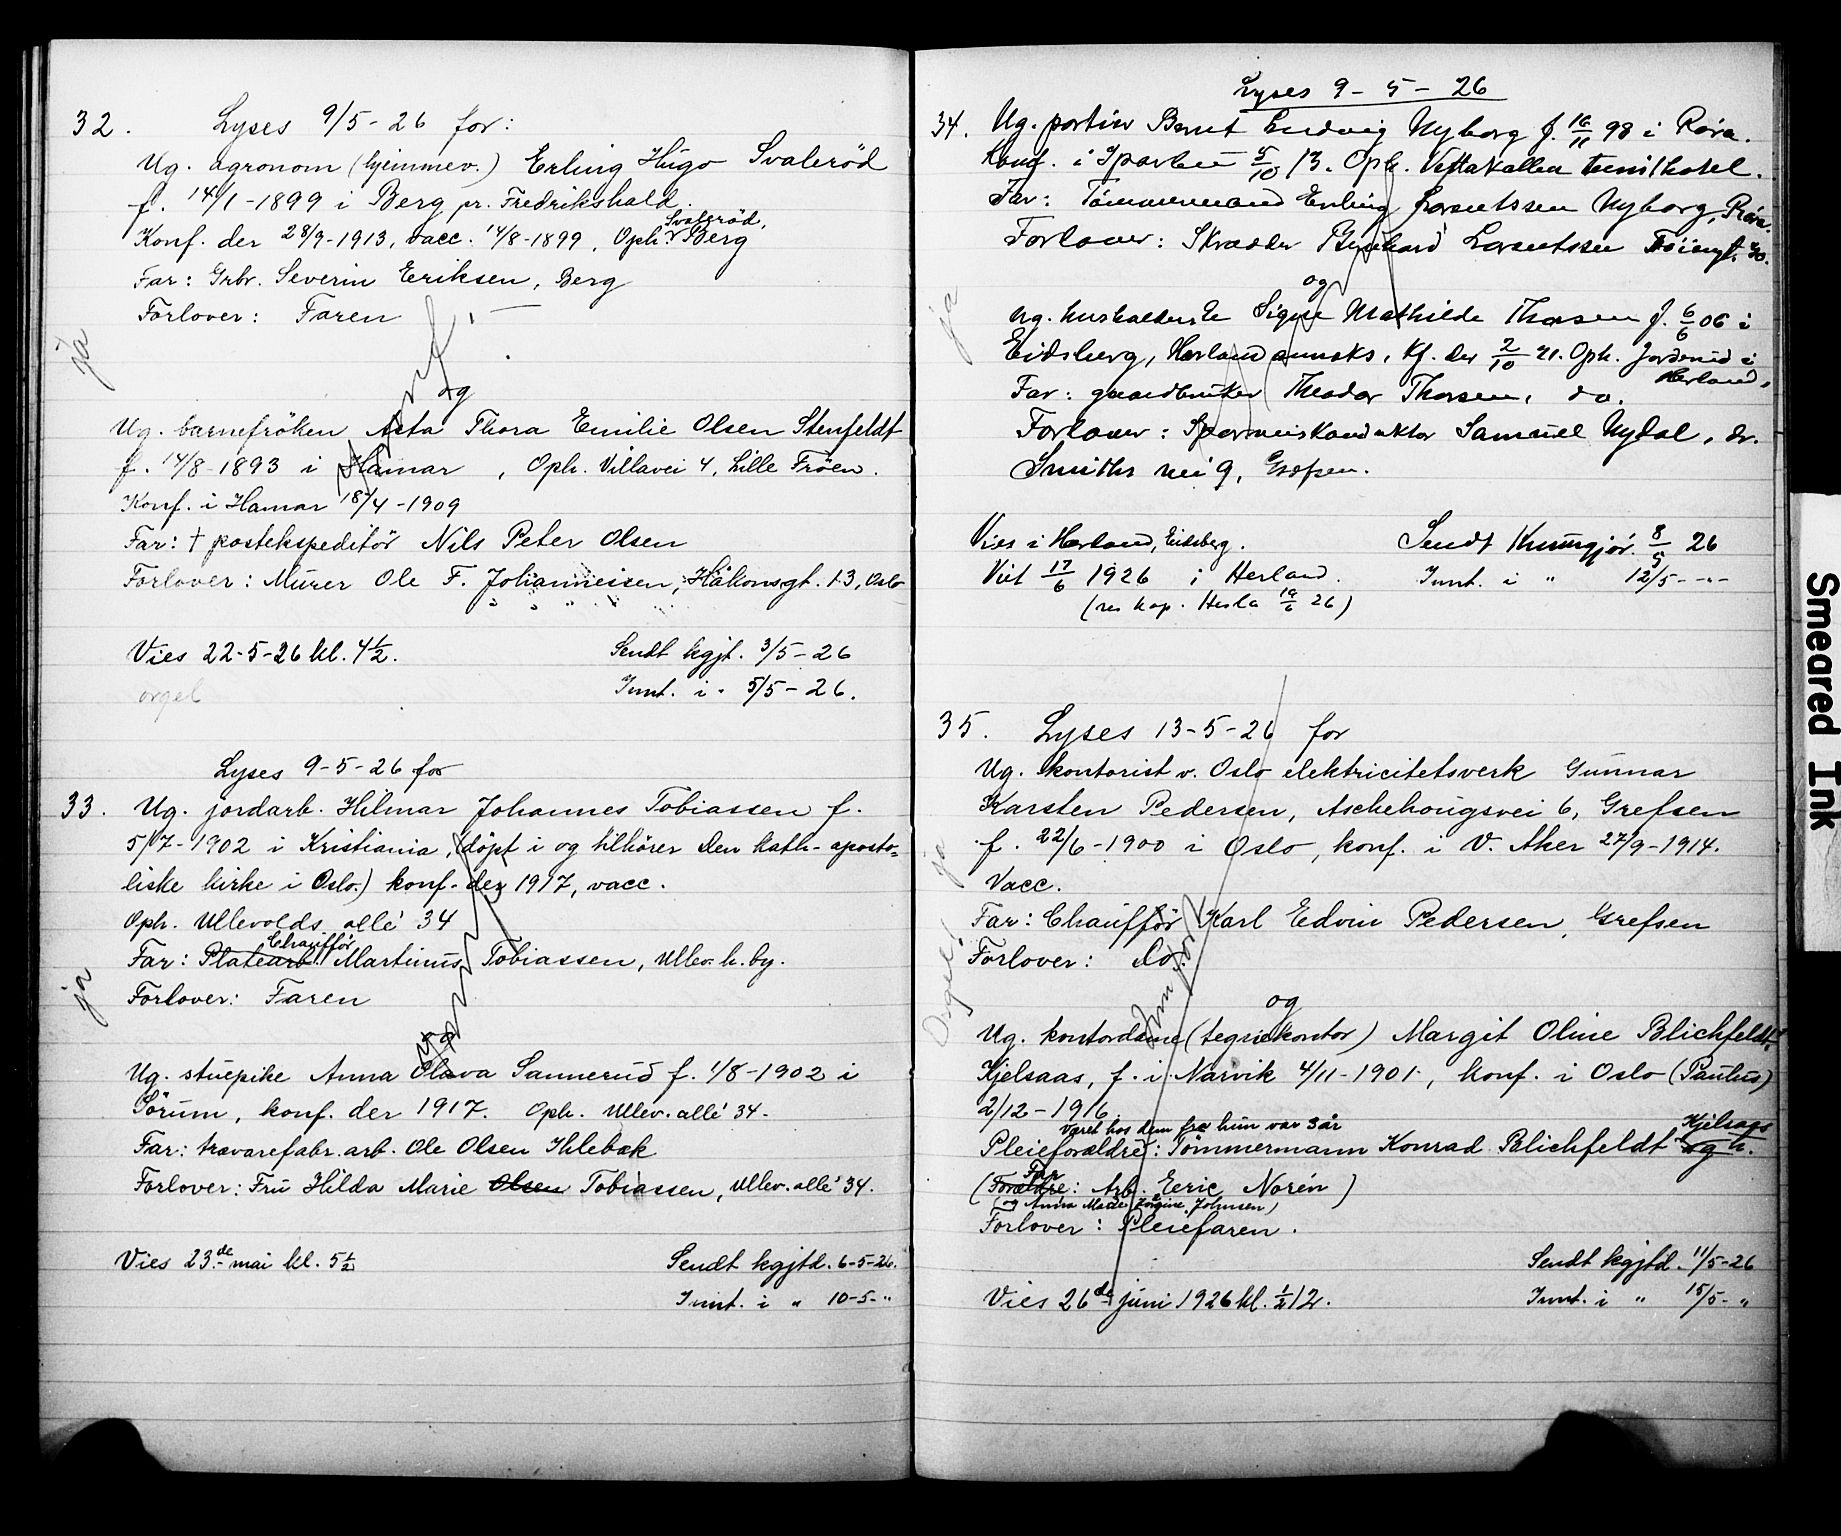 32. Lyses 9/5-26 for:
Ug. agronom (hjemmev.) Erling Hugo Svalerød
f. 14/1-1899 i Berg pr. Fredrikshald.
Svalerød,
Konf. der 28/9-1913, vacc. 14/8-1899, Oph. Berg
Far: Grbr. Severin Eriksen, Berg
Forlover: Faren
ja
og
Ug. barnefröken Asta Thora Emilie Olsen Stenfeldt
f. 14/8-1893 i Hamar, Oph. Villavei 4, Lille Fröen.
Konf. i Hamar 18/4-1909
Far: † postekspeditör Nils Peter Olsen
Forlover: Murer Ole F. Johannesen, Håkonsgt. 13, Oslo
Vies 22-5-26 kl. 4 1/2. Sendt kgjt. 3/5-26
orgel Innt. i " 5/5-26.
Lyses 9-5-26 for
33. Ug. jordarb. Hilmar Johannes Tobiassen f.
5/7-1902 i Kristiania, (döpt i og tilhörer Den kath-aposto=
liske kirke i Oslo.) konf. der 1917, vacc.
Oph. Ullevolds allé 34
Chufför
Far: Platearb. Martinus Tobiassen, Ullev. h. by.
ja
Forlover: Faren
og
Ug. stuepike Anna Olava Sannerud f. 1/8-1902 i
Sörum, konf. der 1917. Oph. Ullev. allé 34.
Far: trævarefabr. arb. Ole Olsen Ihlebæk
Forlover: Fru Hilda Marie Olsen Tobiassen, Ullev. allé 34.
Vies 23de mai kl. 5 1/2 Sendt kgjtd. 6-5-26.
Innt. i " 10-5-"
Lyses 9-5-26
34. Ug. portier Bernt Ludvig Nyborg f. 16/11 98 i Røra.
Konf. i Sparbu 5/10 13. Oph. Vettakollen turisthotel.
Far: Tømmermand Erling Lorentssen Nyborg, Røra.
Forlover: Skræder Bernhard Lorentssen
og
ja
ug. husholderske Signe Mathilde Thorsen f. 6/6 06 i
Eidsberg, Herland annaks. Kf. der 2/10 21. Oph. i
Herland.
Far: gaardbruker Theodor Thorsen, do.
Forlover: Sporveiskonduktør Samuel Nydal, dr.
Smiths vei 9, Grefsen.
Vies i Herland, Eidsberg. Sendt Kunngjør. 8/5 26
Viet 17/6 1926 i Herland. Innt. i " 12/5-"-
(res. kap. Hesla 19/6 26)
35. Lyses 13-5-26 for
Ug. kontorist v. Oslo elektricitetsverk Gunnar
Karsten Pedersen, Aschehougsvei 6, Grefsen
f. 22/6-1900 i Oslo, konf. i V. Aker 27/9-1914.
ja
Vacc.
Far: Chaufför Karl Edvin Pedersen, Grefsen
Forlover: Do.
Orgel
og
Ug. kontordame (tegnekontor) Margit Oline Blichfeldt,
Kjelsaas, f. i Narvik 4/11-1901, konf. i Oslo (Paulus)
2/12-1916.
været hos dem fra hun var 3 år
Kjelsaas
Pleieforældre: Tömmermann Konrad Blichfeldt og h.
Far
(Forældre: Arb. Eeric Norén)
(og Andra Marie Jorgine Johnsen)
Forlover: Pleiefaren.
Sendt kgjtd. 11/5-26
Vies 26de juni 1926 kl. 1/2 12. Innt. i " 15/5-"
Smeared Ink